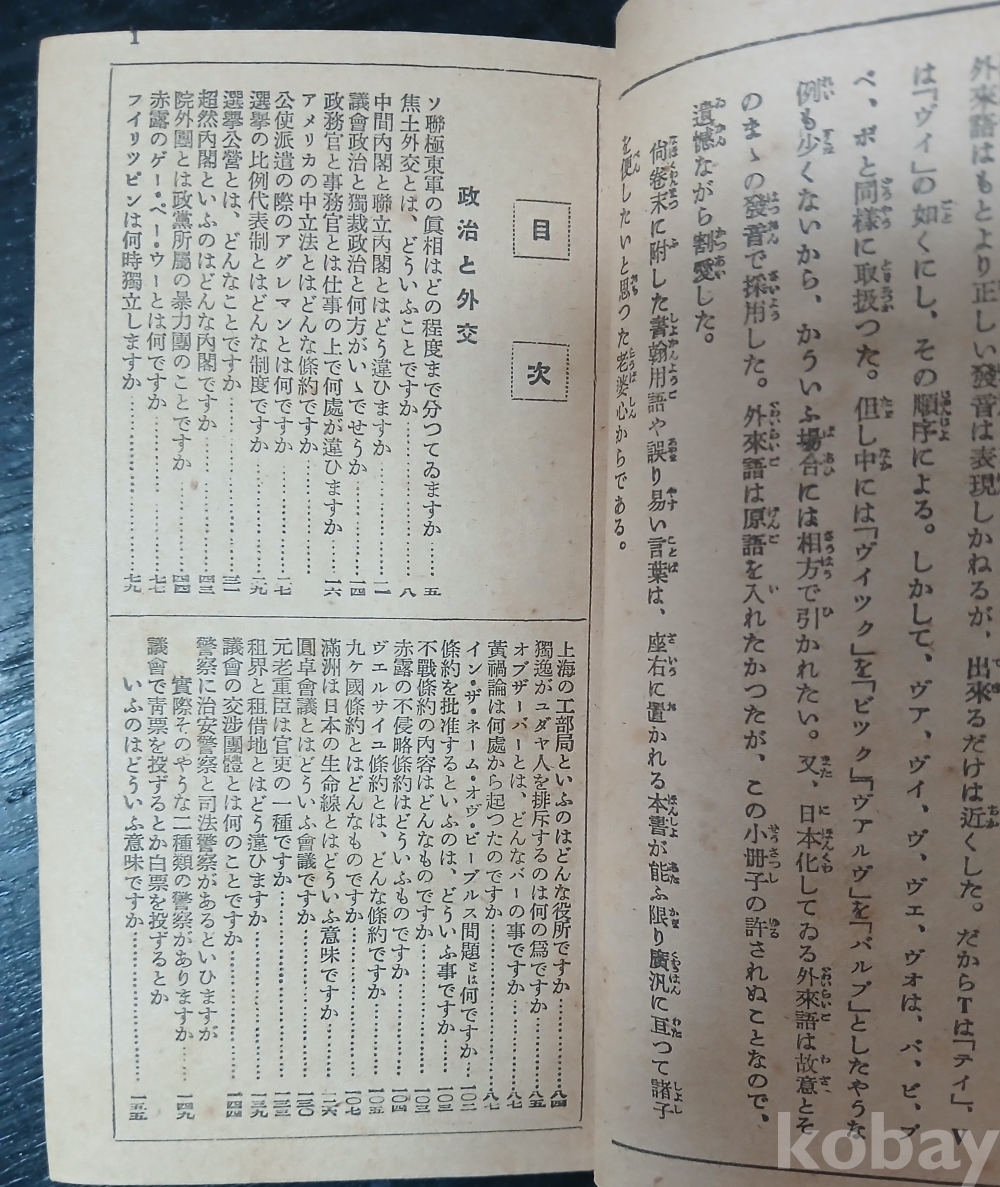 外來語はもとより正しい發音は表現しかねるが、出來るだけは近くした。だからTは「テイ」、V
は「ヴイ」の如くにし、その順序による。しかして、ヴア、ヴイ、ヴ、ヴエ、ヴオは、バ、ビ、ブ
ベ、ボと同樣に取扱つた。但し中には「ヴイツク」を「ビツク」「ヴアルヴ」を「バルブ」としたやうな
例も少くないから、かういふ場合には相方で引かれたい。又、日本化してゐる外來語は故意とそ
のまゝの發音で採用した。外來語は原語を入れたかつたが、この小册子の許されぬことなので、
遺憾ながら割愛した。
尙卷末に附した書翰用語や誤り易い言葉は、座右に置かれる本書が能ふ限り廣汎に亙つて諸子
を便したいと思つた老婆心からである。
1
目次
政治と外交
ソ聯極東軍の眞相はどの程度まで分つてゐますか……五
焦土外交とは、どういふことですか……八
中間內閣と聯立內閣とはどう違ひますか……一一
議會政治と獨裁政治と何方がいゝでせうか……一四
政務官と事務官とは仕事の上で何處が違ひますか……一六
アメリカの中立法とはどんな條約ですか……
公使派遣の際のアグレマンとは何ですか……一七
選擧の比例代表制とはどんな制度ですか……一九
選擧公營とは、どんなことですか……三一
超然內閣といふのはどんな內閣ですか……四三
院外團とは政黨所屬の暴力團のことですか……四四
赤露のゲー・ペー・ウーとは何ですか……七七
フイリツピンは何時獨立しますか……七九
上海の工部局といふのはどんな役所ですか……八四
獨逸がユダヤ人を排斥するのは何の爲ですか……八五
オブザーバーとは、どんなバーの事ですか……八七
黃禍論は何處から起つたのですか……八七
イン・ザ・ネーム・オヴ・ピープルス問題とは何ですか…一〇二
條約を批准するといふのは、どういふ事ですか……一〇三
不戰條約の內容はどんなものですか……一〇三
赤露の不侵略條約はどういふものですか……一〇四
ヴエルサイユ條約とは、どんな條約ですか……一〇五
九ケ國條約とはどんなものですか……一〇七
滿洲は日本の生命線とはどういふ意味ですか……一二六
圓卓會議とはどういふ會議ですか……一三〇
元老重臣は官吏の一種ですか……一三三
租界と租借地とはどう違ひますか……一三九
議會の交涉團體とは何のことですか……一四四
警察に治安警察と司法警察があるといひますが
實際そのやうな二種類の警察がありますか……一四九
議會で靑票を投ずるとか白票を投ずるとか
いふのはどういふ意味ですか……一五五
kobay